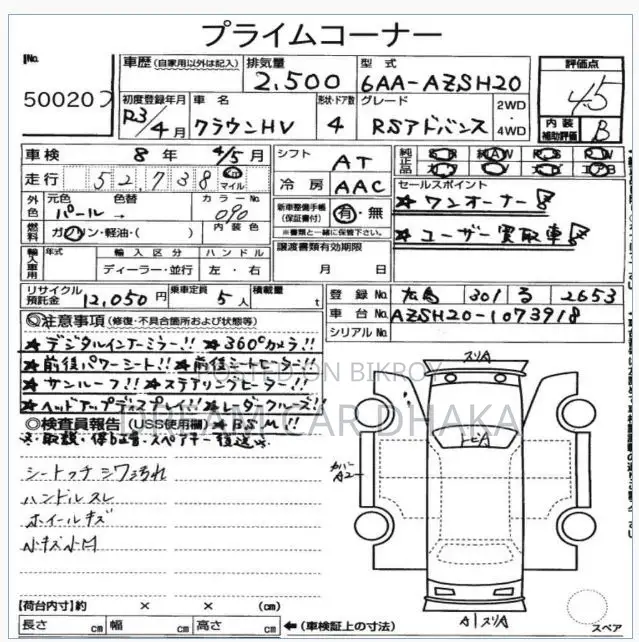 プライムコーナー
No.
50020
車歴 (自家用以外は記入) 排気量 2,500 型式 6AA-AZSH20 評価点 4.5
初度登録年月 R3/4月 車名 クラウンHV 形状・ドア数 4 グレード RSアドバンス 2WD・4WD 内装補助評価 B
車検 8年 4/5月 シフト AT 純正品 S R A W P.S P W
走行 52,738 マイル 冷房 AAC エアB
セールスポイント
外色 元色 パール 色替 → カラーNo. 090 新車整備手帳(保証書付) 有・無 ※書類と一緒に保管下さい。
★ ワンオーナー
燃料 ガソリン・軽油・( ) 内装色 譲渡書類有効期限
★ ユーザー買取車
輸入車用 年式 輸入区分 ハンドル 月 日
ディーラー・並行 左・右
リサイクル預託金 12,050円 乗車定員 5人 積載量 t 登録No. 広島 301 る 2653
車台No. AZSH20-1073918
シリアルNo.
◎注意事項 (修復・不具合箇所および状態等)
★デジタルインナーミラー!! ★360°カメラ!!
★前後パワーシート!! ★前後シートヒーター!!
★サンルーフ!! ★ステアリングヒーター!!
★ヘッドアップディスプレイ!! ★レーダークルーズ!!
◎検査員報告 (USS使用欄) ★BSM!!
※取説・保証書・スペアキー後送※
シートっチシワ汚れ
ハンドルスレ
ホイールキズ
小キズ小凹
POSTED ON BIKROY
DREAM CAR DHAKA
スリA
トビA
カバー
A2
A1 スリA
スペア
【荷台内寸】約 × × (cm)
長さ cm 幅 cm 高さ cm ←(車検証上の寸法)